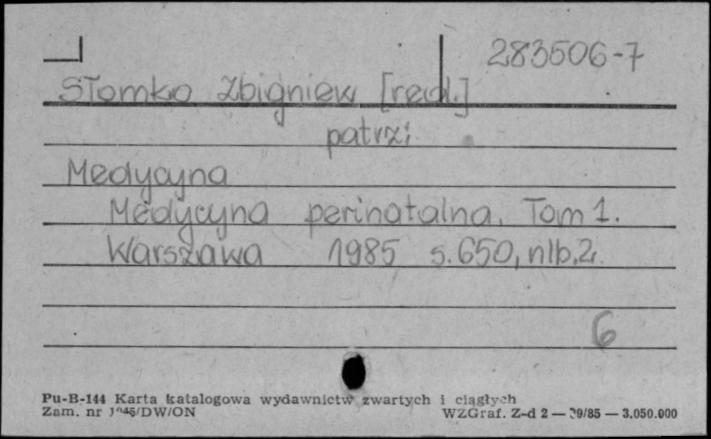 283506-7
Słomko Zbigniew [red.]
patrz:
Medycyna
Medycyna perinatalna. Tom 1.
Warszawa 1985 s. 650, nlb. 2.
6
Pu-B-144 Karta katalogowa wydawnictw zwartych i ciągłych
Zam. nr /DW/ON WZGraf. Z-d 2 — /85 — 3.050.000